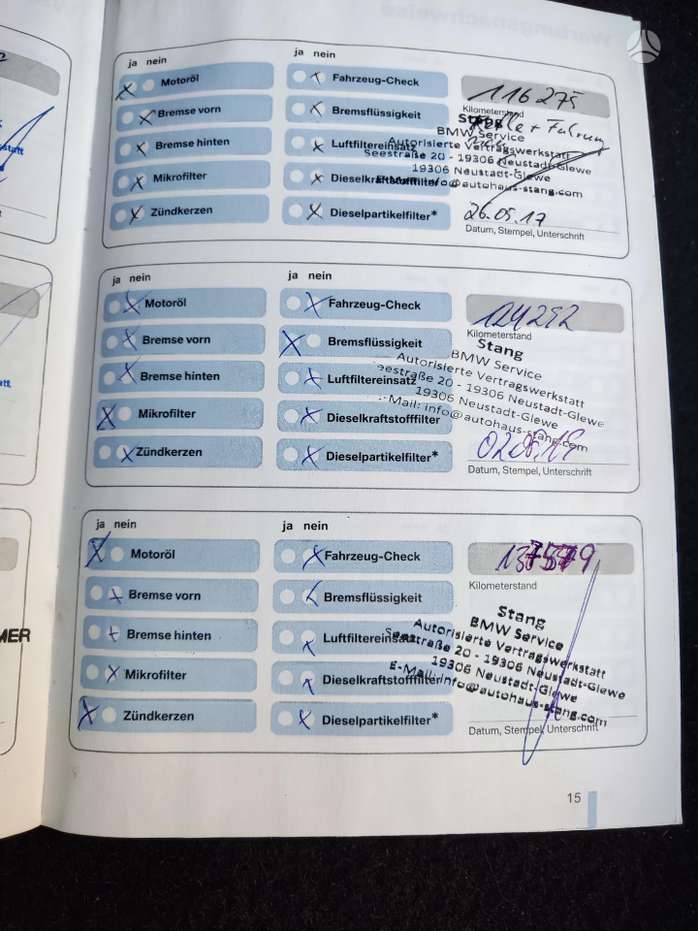 ja nein
Motoröl
Bremse vorn
Bremse hinten
Mikrofilter
Zündkerzen
ja nein
Fahrzeug-Check
Bremsflüssigkeit
Luftfiltereinsatz
Dieselkraftstofffilter
Dieselpartikelfilter*
116275
Kilometerstand
Stang
BMW Service
Autorisierte Vertragswerkstatt
Seestraße 20 - 19306 Neustadt-Glewe
19306 Neustadt-Glewe
E-Mail: info@autohaus-stang.com
26.05.17
Datum, Stempel, Unterschrift
ja nein
Motoröl
Bremse vorn
Bremse hinten
Mikrofilter
Zündkerzen
ja nein
Fahrzeug-Check
Bremsflüssigkeit
Luftfiltereinsatz
Dieselkraftstofffilter
Dieselpartikelfilter*
124252
Kilometerstand
Stang
BMW Service
Autorisierte Vertragswerkstatt
Seestraße 20 - 19306 Neustadt-Glewe
19306 Neustadt-Glewe
E-Mail: info@autohaus-stang.com
Datum, Stempel, Unterschrift
ja nein
Motoröl
Bremse vorn
Bremse hinten
Mikrofilter
Zündkerzen
ja nein
Fahrzeug-Check
Bremsflüssigkeit
Luftfiltereinsatz
Dieselkraftstofffilter
Dieselpartikelfilter*
Kilometerstand
Stang
BMW Service
Autorisierte Vertragswerkstatt
Seestraße 20 - 19306 Neustadt-Glewe
19306 Neustadt-Glewe
E-Mail: info@autohaus-stang.com
Datum, Stempel, Unterschrift
15